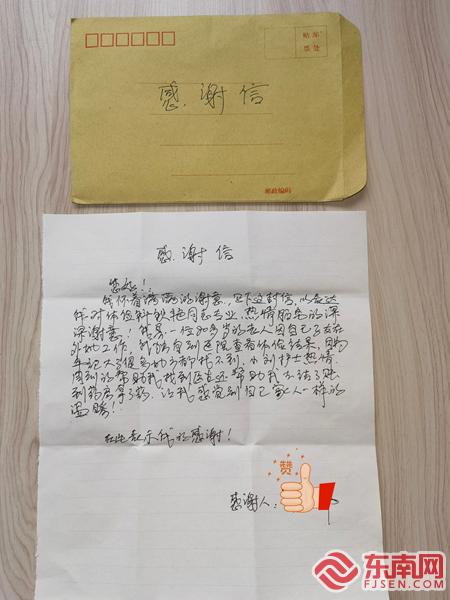 贴邮
票处
感谢信
邮政编码
感谢信
您好!
我怀着满满的谢意,写下这封信,以表达
我对体检科 同志专业、热情服务的深
深谢意!我是一位80多岁的老人因自己子女在
外地工作,我独自到医院查看体检结果,因为
年纪大了很多地方都找不到,小刘护士热情
周到的帮助我找到医生还帮助我 了账
到药房拿了药,让我感觉到自己家人一样的
温暖!
在此表示我的感谢!
赞
感谢人:
东南网
FJSEN.COM